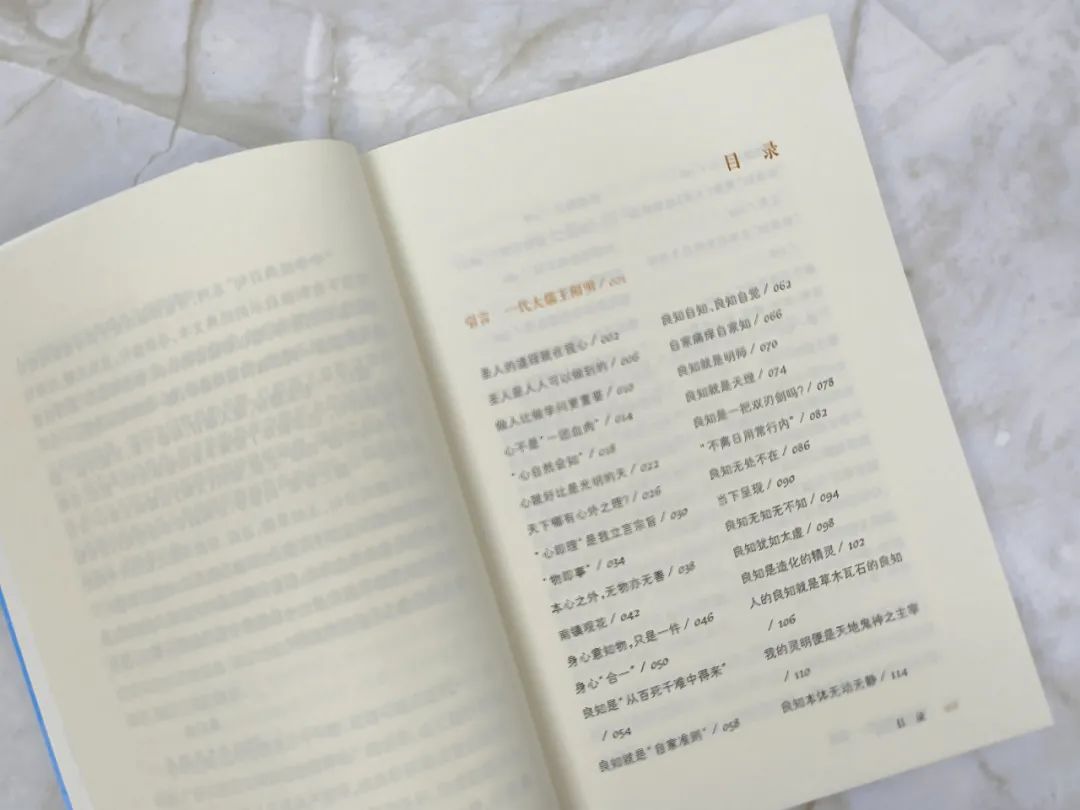 目 录
引言 一代大儒王阳明 / 001
圣人的道理就在我心 / 002
圣人是人人可以做到的 / 006
做人比做学问更重要 / 010
心不是“一团血肉” / 014
“心自然会知” / 018
心就好比是光明的天 / 022
天下哪有心外之理? / 026
“心即理”是我立言宗旨 / 030
“物即事” / 034
本心之外,无物亦无善 / 038
南镇观花 / 042
身心意知物,只是一件 / 046
身心“合一” / 050
良知是“从百死千难中得来”
/ 054
良知就是“自家准则” / 058
良知自知、良知自觉 / 062
自家痛痒自家知 / 066
良知就是明师 / 070
良知就是天理 / 074
良知是一把双刃剑吗? / 078
“不离日用常行内” / 082
良知无处不在 / 086
当下呈现 / 090
良知无知无不知 / 094
良知犹如太虚 / 098
良知是造化的精灵 / 102
人的良知就是草木瓦石的良知
/ 106
我的灵明便是天地鬼神之主宰
/ 110
良知本体无动无静 / 114
目 录